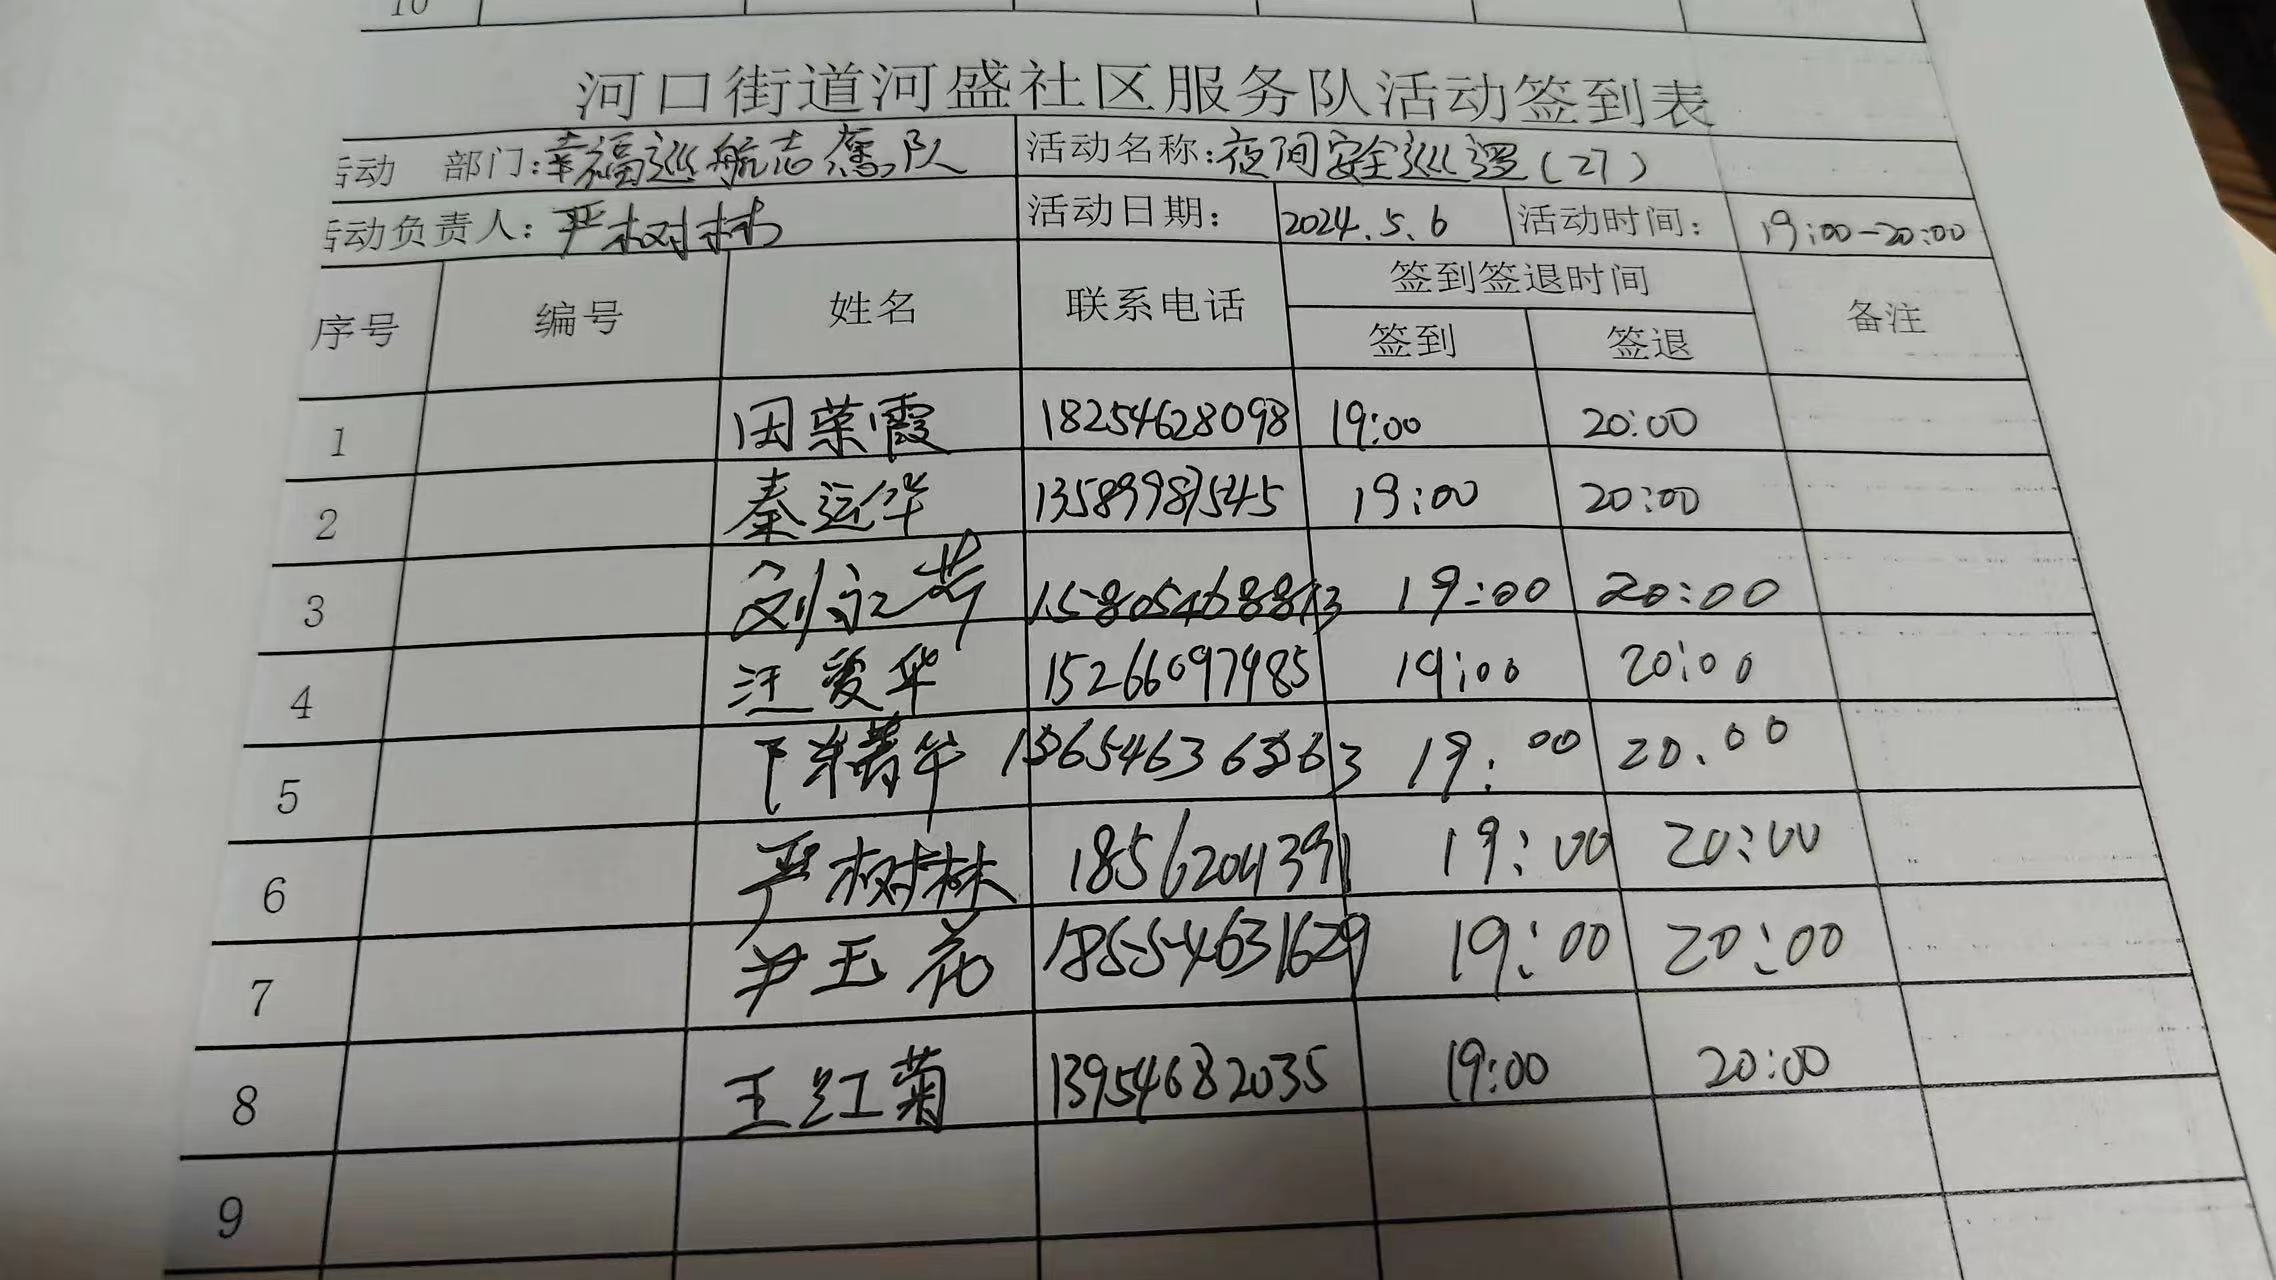 10
河口街道河盛社区服务队活动签到表
活动 部门:幸福巡航志愿队 活动名称:夜间安全巡逻(27)
活动负责人:严树林 活动日期: 2024.5.6 活动时间: 19:00-20:00
序号 编号 姓名 联系电话 签到签退时间 备注
签到 签退
1 田荣霞 18254628098 19:00 20:00
2 秦运华 13589987545 19:00 20:00
3 刘永芳 15805468813 19:00 20:00
4 汪爱华 15266097985 19:00 20:00
5 19:00 20.00
6 严树林 18562041391 19:00 20:00
7 尹玉花 18554631629 19:00 20:00
8 王红菊 13954682035 19:00 20:00
9